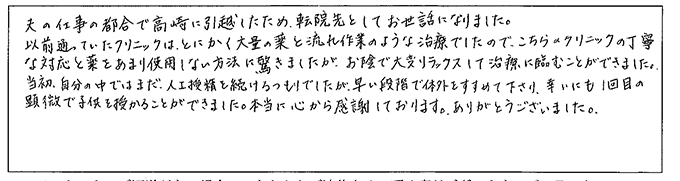 夫の仕事の都合で高崎に引越したため、転院先としてお世話になりました。
以前通っていたクリニックは、とにかく大量の薬と流れ作業のような治療でしたので、こちらのクリニックの丁寧
な対応と薬をあまり使用しない方法に驚きましたが、お陰で大変リラックスして治療に臨むことができました。
当初、自分の中ではまだ、人工授精を続けるつもりでしたが、早い段階で体外をすすめて下さり、幸いにも1回目の
顕微で子供を授かることができました。本当に心から感謝しております。ありがとうございました。